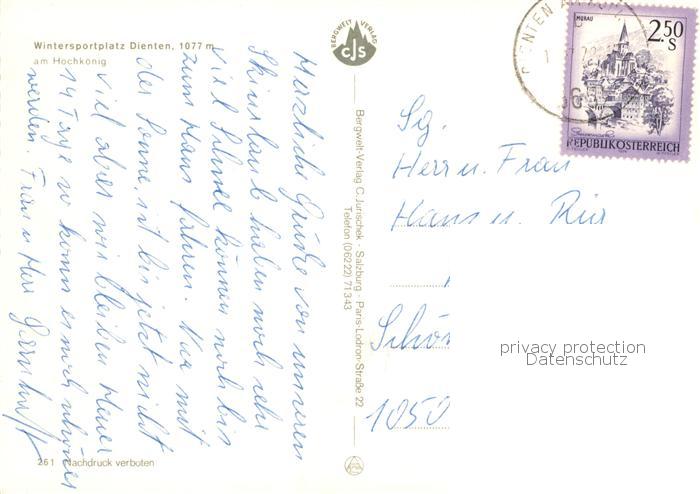 Wintersportplatz Dienten, 1077 m
am Hochkönig
Herzliche Grüße von unseren
Skiurlaub haben noch sehr
viel Schnee können noch bis
zum Haus fahren. Nur mit
der Sonne ist bis jetzt nicht
viel aber wir bleiben heuer
14 Tage so kann es noch schöner
werden. Frau u Herr
261 Nachdruck verboten
BERGWELT VERLAG
CJS
Bergwelt-Verlag C.Jurischek - Salzburg - Paris-Lodron-Straße 22
Telefon (06222) 71343
MURAU
2.50
S
REPUBLIK ÖSTERREICH
Sg.
Herr u. Frau
Hans u.
Schön
1050
privacy protection
Datenschutz